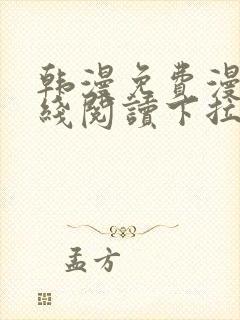 韩漫免费漫
线阅读下拉
孟方